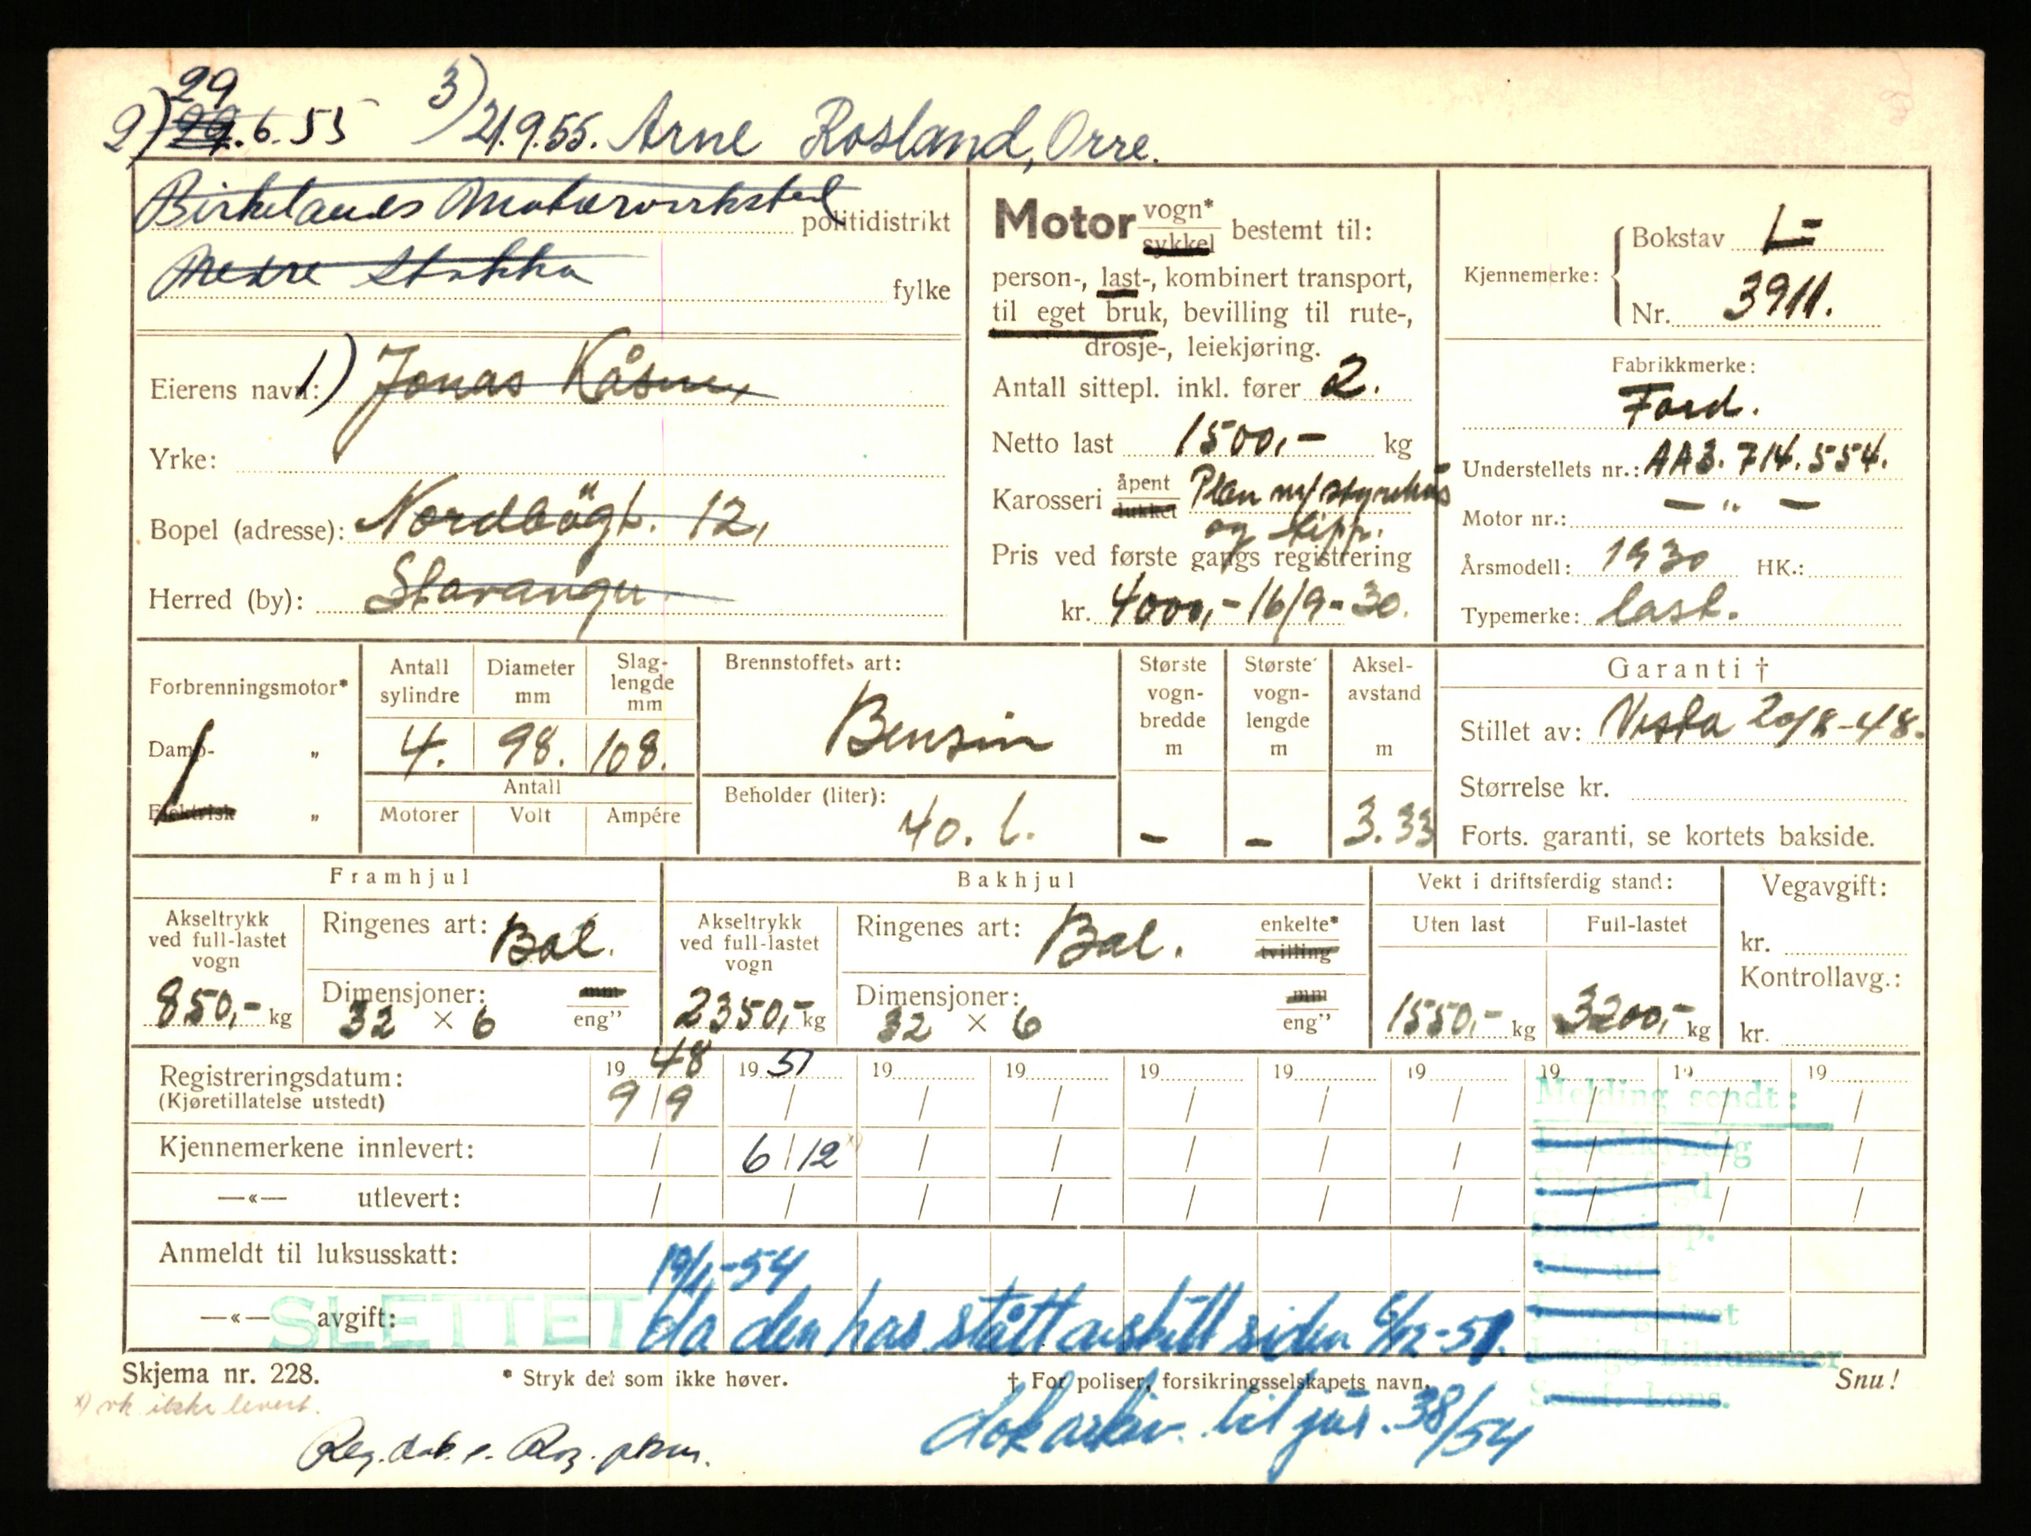 29
2) 29.6.55 3) 21.9.55. Arne Rosland, Orre.
Birkelands Motorverksted politidistrikt
Nedre Stokka fylke
Eierens navn: 1) Jonas Kåsen,
Yrke:
Bopel (adresse): Nordbögt. 12,
Herred (by): Stavanger
Motor vogn* sykkel bestemt til:
person-, last-, kombinert transport,
til eget bruk, bevilling til rute-,
drosje-, leiekjøring.
Antall sittepl. inkl. fører 2.
Netto last 1500,- kg
Karosseri åpent lukket Plan m/styrehus
og tipp.
Pris ved første gangs registrering
kr. 4000,- 16/9-30.
Kjennemerke: Bokstav L-
Nr. 3911.
Fabrikkmerke:
Ford.
Understellets nr.: AA3.714.554.
Motor nr.: — " —
Årsmodell: 1930 HK.:
Typemerke: last.
Forbrenningsmotor*
Damp- "
Elektrisk "
Antall sylindre
Diameter mm
Slag-
lengde
mm
4. 98. 108.
Antall
Motorer Volt Ampére
Brennstoffets art:
Bensin
Beholder (liter):
40. l.
Største
vogn-
bredde
m
-
Største
vogn-
lengde
m
-
Aksel-
avstand
m
3.33
Garanti †
Stillet av: Vesta 20/8-48.
Størrelse kr.
Forts. garanti, se kortets bakside.
Framhjul
Akseltrykk
ved full-lastet
vogn
850,- kg
Ringenes art: Bal.
Dimensjoner: mm
32 × 6 eng"
Bakhjul
Akseltrykk
ved full-lastet
vogn
2350,- kg
Ringenes art: Bal. enkelte*
tvilling
Dimensjoner: mm
32 × 6 eng"
Vekt i driftsferdig stand:
Uten last Full-lastet
1550,- kg 3200,- kg
Vegavgift:
kr.
Kontrollavg.:
kr.
Registreringsdatum: 1948 1951 19 19 19 19 19 19 19 19
(Kjøretillatelse utstedt) 9/9 / / / / / / / / /
Kjennemerkene innlevert: / 6/12 x) / / / / / / / /
—«— utlevert: / / / / / / / / / /
Melding sendt:
Anmeldt til luksusskatt: 19/1-54
—«— avgift: SLETTET da den har stått avskilt siden 6/12-51.
Skjema nr. 228. * Stryk det som ikke høver. † For poliser, forsikringsselskapets navn. Snu!
x) vk. ikke levert.
Reg. dok. s. Rog. pkm.
dok arkiv. til jür. 38/54